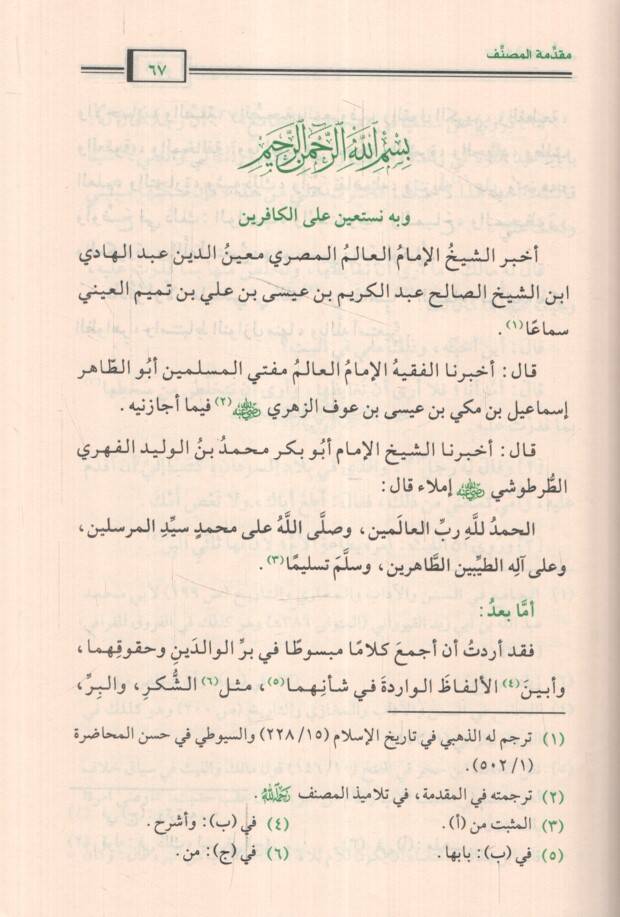 مقدَّمة المصنِّف
٦٧
بِسْمِ اللَّهِ الرَّحْمَنِ الرَّحِيمِ
وبه نستعين على الكافرين
أخبر الشيخُ الإمامُ العالمُ المصري معينُ الدين عبد الهادي
ابن الشيخ الصالح عبد الكريم بن عيسى بن علي بن تميم العيني
سماعًا (١).
قال: أخبرنا الفقيهُ الإمامُ العالمُ مفتي المسلمين أبُو الطَّاهر
إسماعيل بن مكي بن عيسى بن عوف الزهري رضي الله عنه (٢) فيما أجازنيه.
قال: أخبرنا الشيخ الإمام أبُو بكر محمدُ بنُ الوليد الفهري
الطُّرطوشي رضي الله عنه إملاء قال:
الحمدُ للَّهِ ربِّ العالَمين، وصلَّى اللَّهُ على محمدٍ سيِّدِ المرسلين،
وعلى آلِه الطيِّبين الطَّاهرين، وسلَّمَ تسليمًا (٣).
أمَّا بعدُ:
فقد أردتُ أن أجمعَ كلامًا مبسوطًا في برِّ الوالدَينِ وحقوقِهما،
وأبينَ (٤) الألفاظَ الواردةَ في شأنِهما (٥)، مثل (٦) الشُّكرِ، والبِرِّ،
(١) ترجم له الذهبي في تاريخ الإسلام (١٥/ ٢٢٨) والسيوطي في حسن المحاضرة
(١/ ٥٠٢).
(٢) ترجمته في المقدمة، في تلاميذ المصنف رحمه الله.
(٣) المثبت من (أ). (٤) في (ب): وأشرح.
(٥) في (ب): بابها. (٦) في (ج): من.